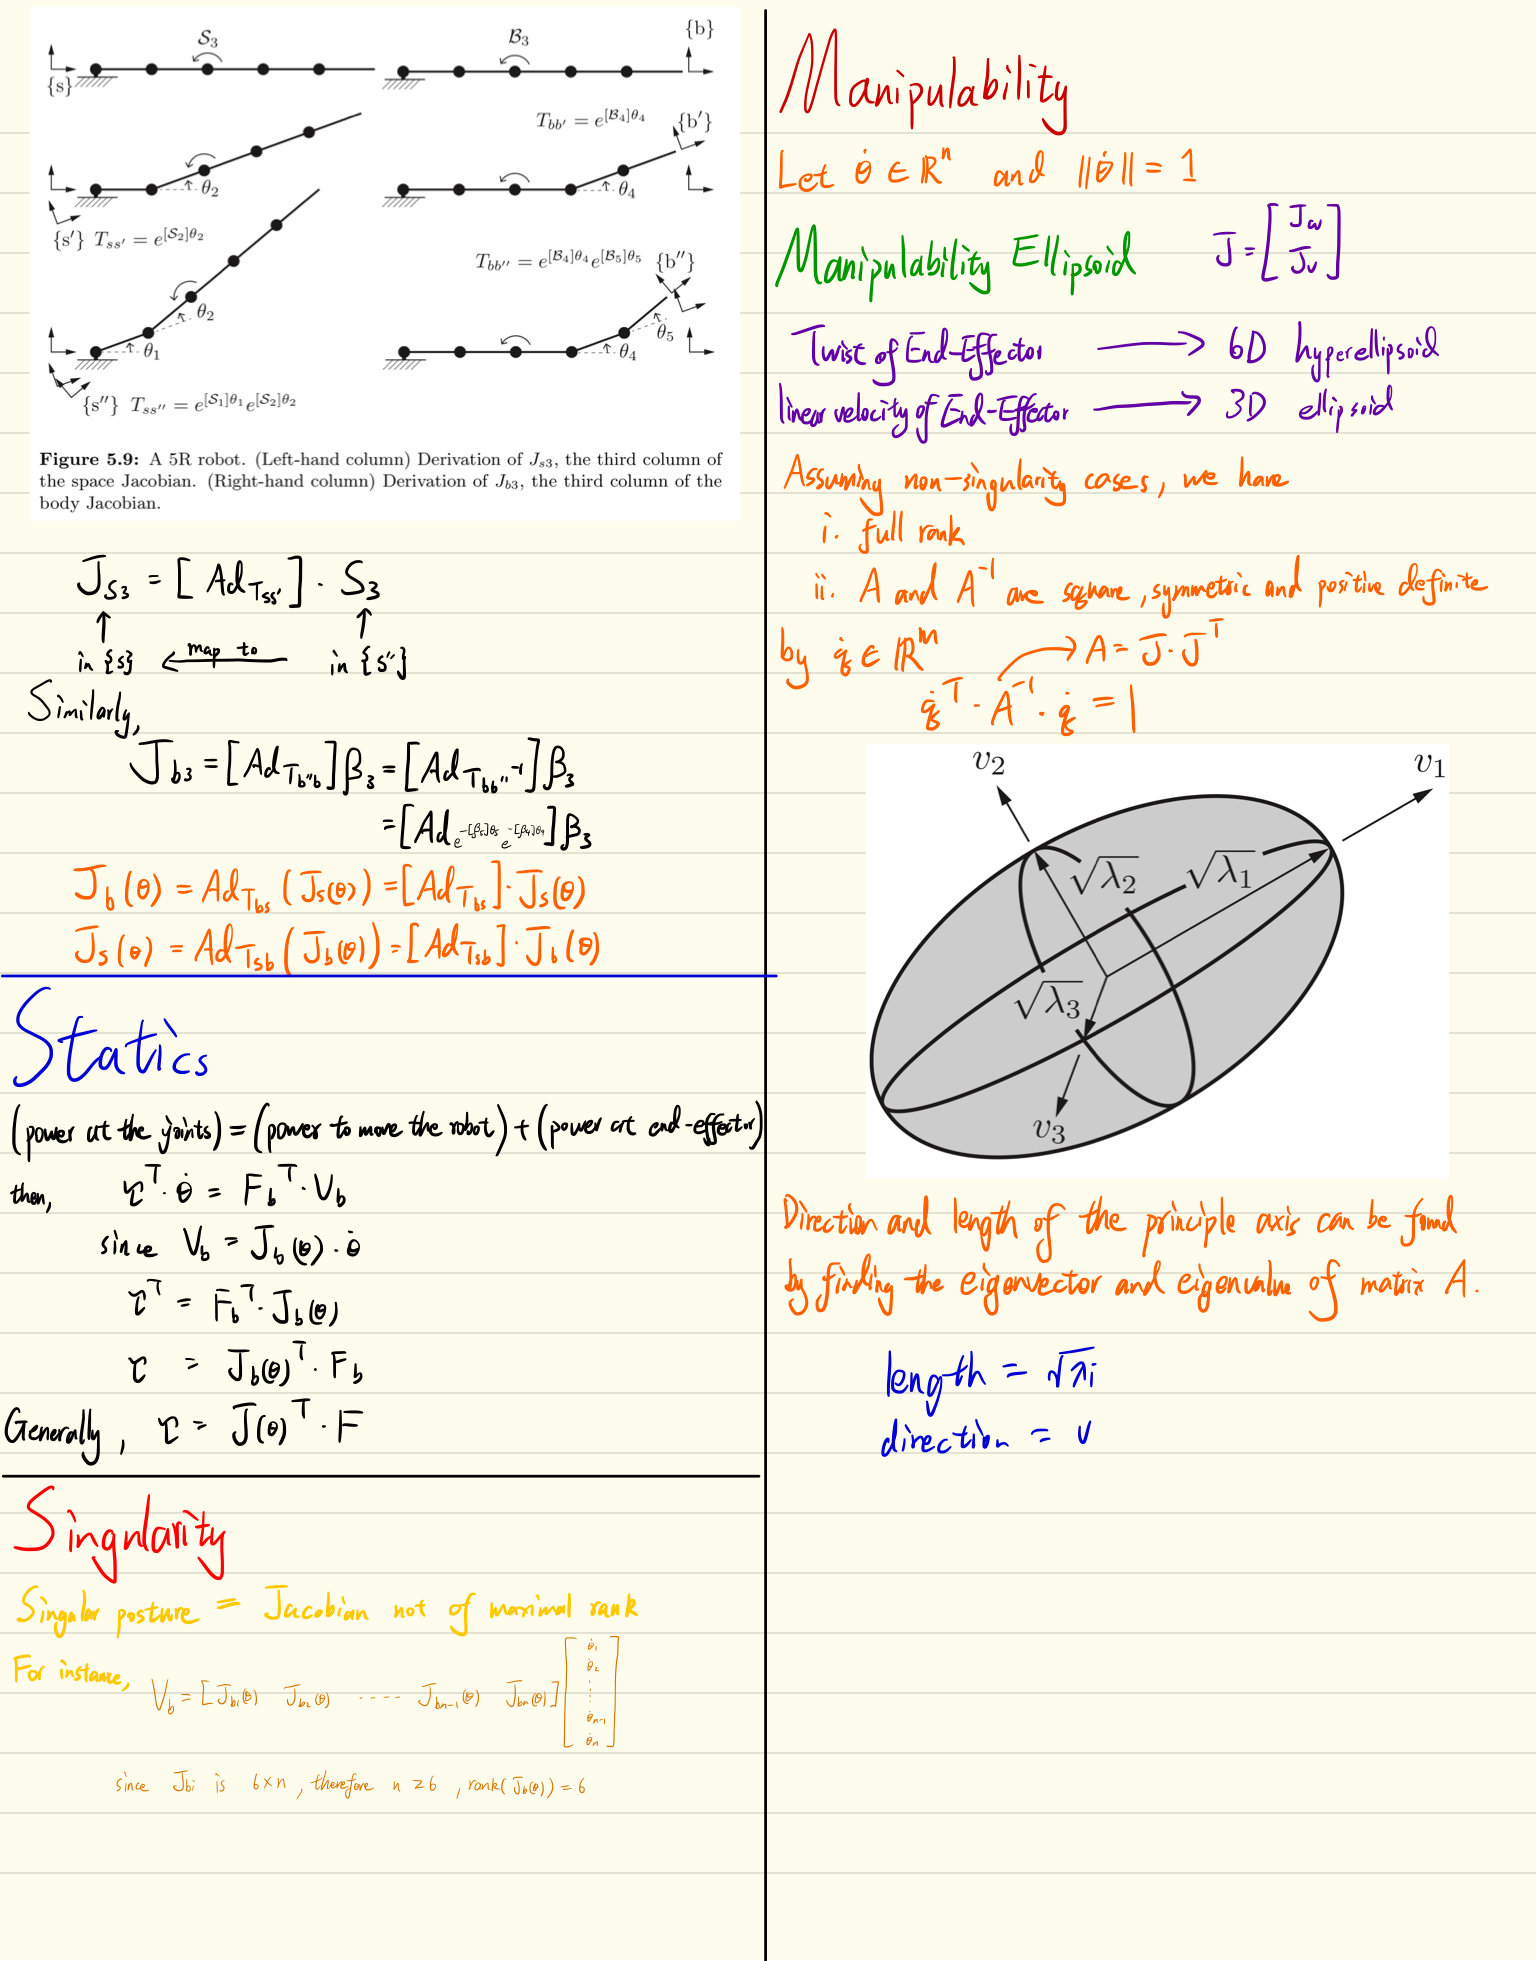 S₃
{s}
θ₂
{s′} T_ss′ = e^[S₂]θ₂
θ₂
θ₁
{s″} T_ss″ = e^[S₁]θ₁ e^[S₂]θ₂
B₃
{b}
T_bb′ = e^[B₄]θ₄
{b′}
θ₄
T_bb″ = e^[B₄]θ₄ e^[B₅]θ₅ {b″}
θ₅
θ₄
Figure 5.9: A 5R robot. (Left-hand column) Derivation of J_s3, the third column of
the space Jacobian. (Right-hand column) Derivation of J_b3, the third column of the
body Jacobian.
J_S3 = [Ad_Tss′] · S₃
in {s} map to in {s″}
Similarly,
J_b3 = [Ad_Tb″b] β₃ = [Ad_Tbb″⁻¹] β₃
= [Ad_e^-[β₅]θ₅ e^-[β₄]θ₄] β₃
J_b(θ) = Ad_Tbs (J_s(θ)) = [Ad_Tbs] · J_s(θ)
J_s(θ) = Ad_Tsb (J_b(θ)) = [Ad_Tsb] · J_b(θ)
Statics
(power at the joints) = (power to move the robot) + (power at end-effector)
then, τ^T · θ̇ = F_b^T · V_b
since V_b = J_b(θ) · θ̇
τ^T = F_b^T · J_b(θ)
τ = J_b(θ)^T · F_b
Generally, τ = J(θ)^T · F
Singularity
Singular posture = Jacobian not of maximal rank
For instance,
V_b = [J_b1(θ) J_b2(θ) ---- J_bn-1(θ) J_bn(θ)] [θ̇₁ θ̇₂ ⋮ θ̇_n-1 θ̇_n]
since J_bi is 6×n, therefore n ≥ 6, rank(J_b(θ)) = 6
Manipulability
Let θ̇ ∈ ℝⁿ and ||θ̇|| = 1
Manipulability Ellipsoid J = [J_ω J_v]
Twist of End-Effector → 6D hyperellipsoid
linear velocity of End-Effector → 3D ellipsoid
Assuming non-singularity cases, we have
i. full rank
ii. A and A⁻¹ are square, symmetric and positive definite
by q̇ ∈ ℝᵐ → A = J · J^T
q̇^T · A⁻¹ · q̇ = 1
v₂
v₁
√λ₂
√λ₁
√λ₃
v₃
Direction and length of the principle axis can be found
by finding the eigenvector and eigenvalue of matrix A.
length = √λi
direction = v